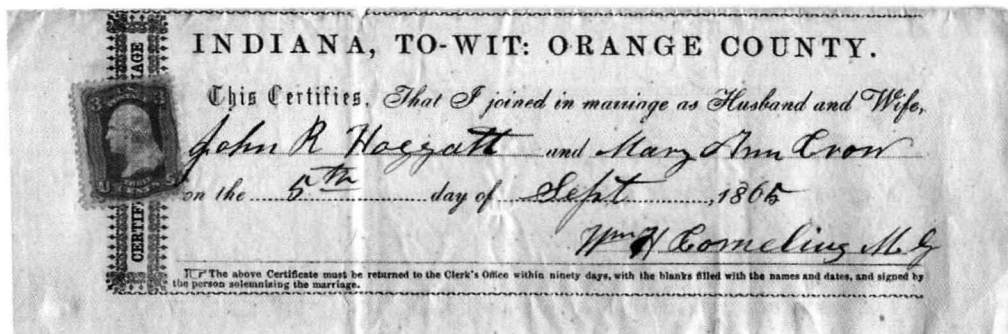 INDIANA, TO-WIT: ORANGE COUNTY.
This Certifies, That I joined in marriage as Husband and Wife,
John R Hoggatt and Mary Ann Crow
on the 5th day of Sept, 1865
Wm H Cornelius M G
☞ The above Certificate must be returned to the Clerk's Office within ninety days, with the blanks filled with the names and dates, and signed by
the person solemnizing the marriage.
3 3